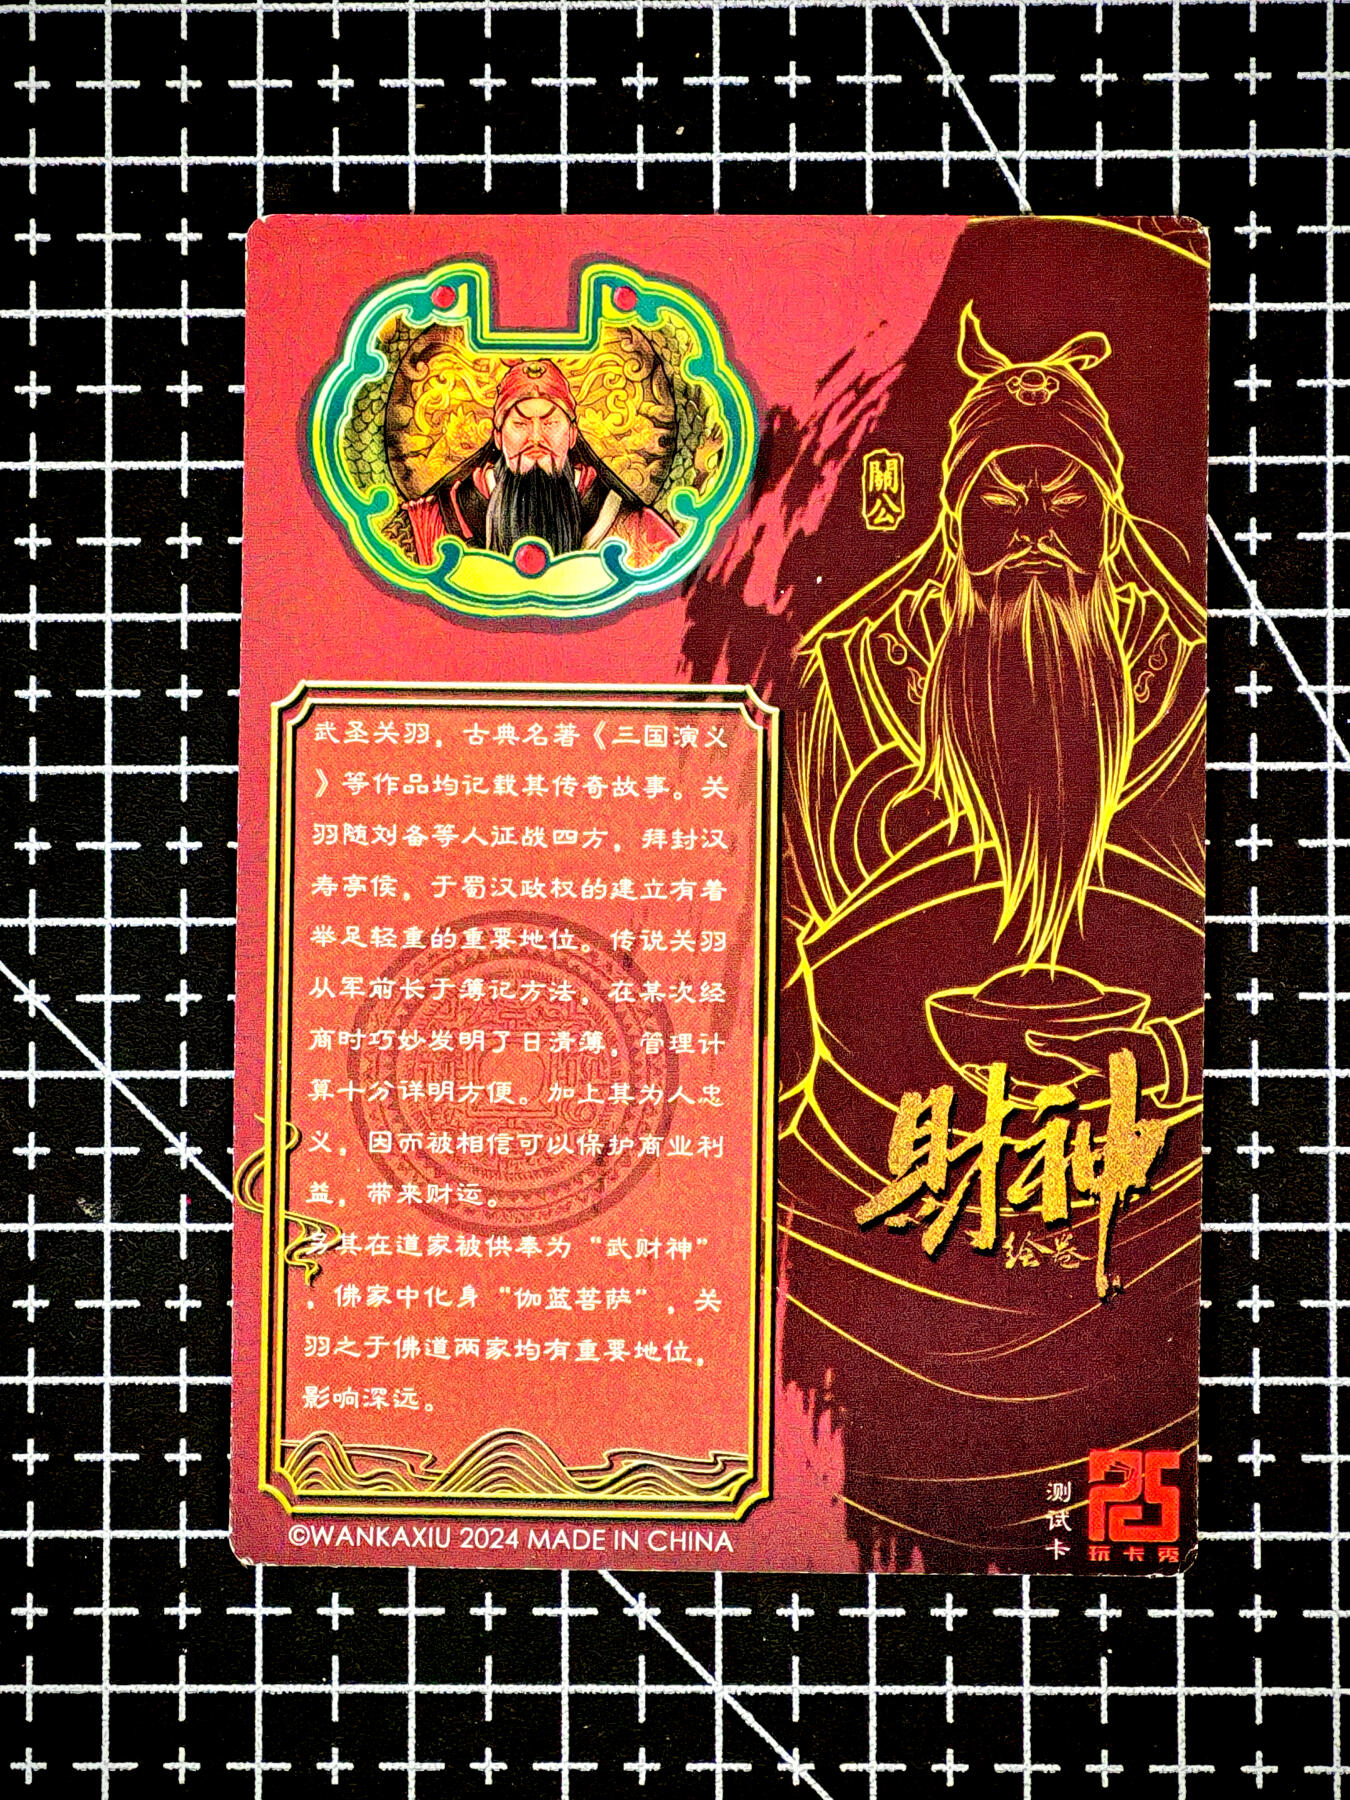 關公
武圣关羽，古典名著《三国演义
》等作品均记载其传奇故事。关
羽随刘备等人征战四方，拜封汉
寿亭侯，于蜀汉政权的建立有着
举足轻重的重要地位。传说关羽
从军前长于簿记方法，在某次经
商时巧妙发明了日清薄，管理计
算十分详明方便。加上其为人忠
义，因而被相信可以保护商业利
益，带来财运。
另其在道家被供奉为“武财神”
，佛家中化身“伽蓝菩萨”，关
羽之于佛道两家均有重要地位，
影响深远。
财神
绘卷
©WANKAXIU 2024 MADE IN CHINA
测试卡
玩卡秀